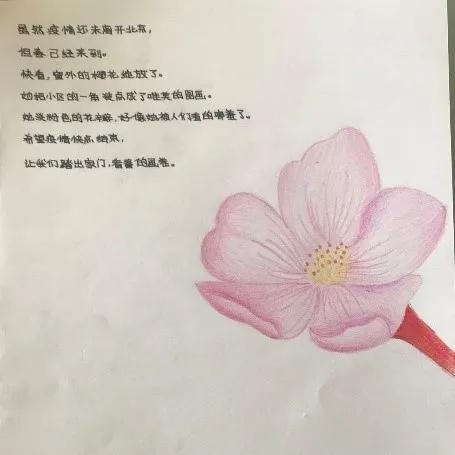 虽然疫情还未离开北京，
但春已经来到。
快看，窗外的樱花绽放了。
她把小区的一角装点成了唯美的图画。
她淡粉色的花瓣，好像她被人们看的害羞了。
希望疫情快点结束，
让我们踏出家门，看春的画卷。